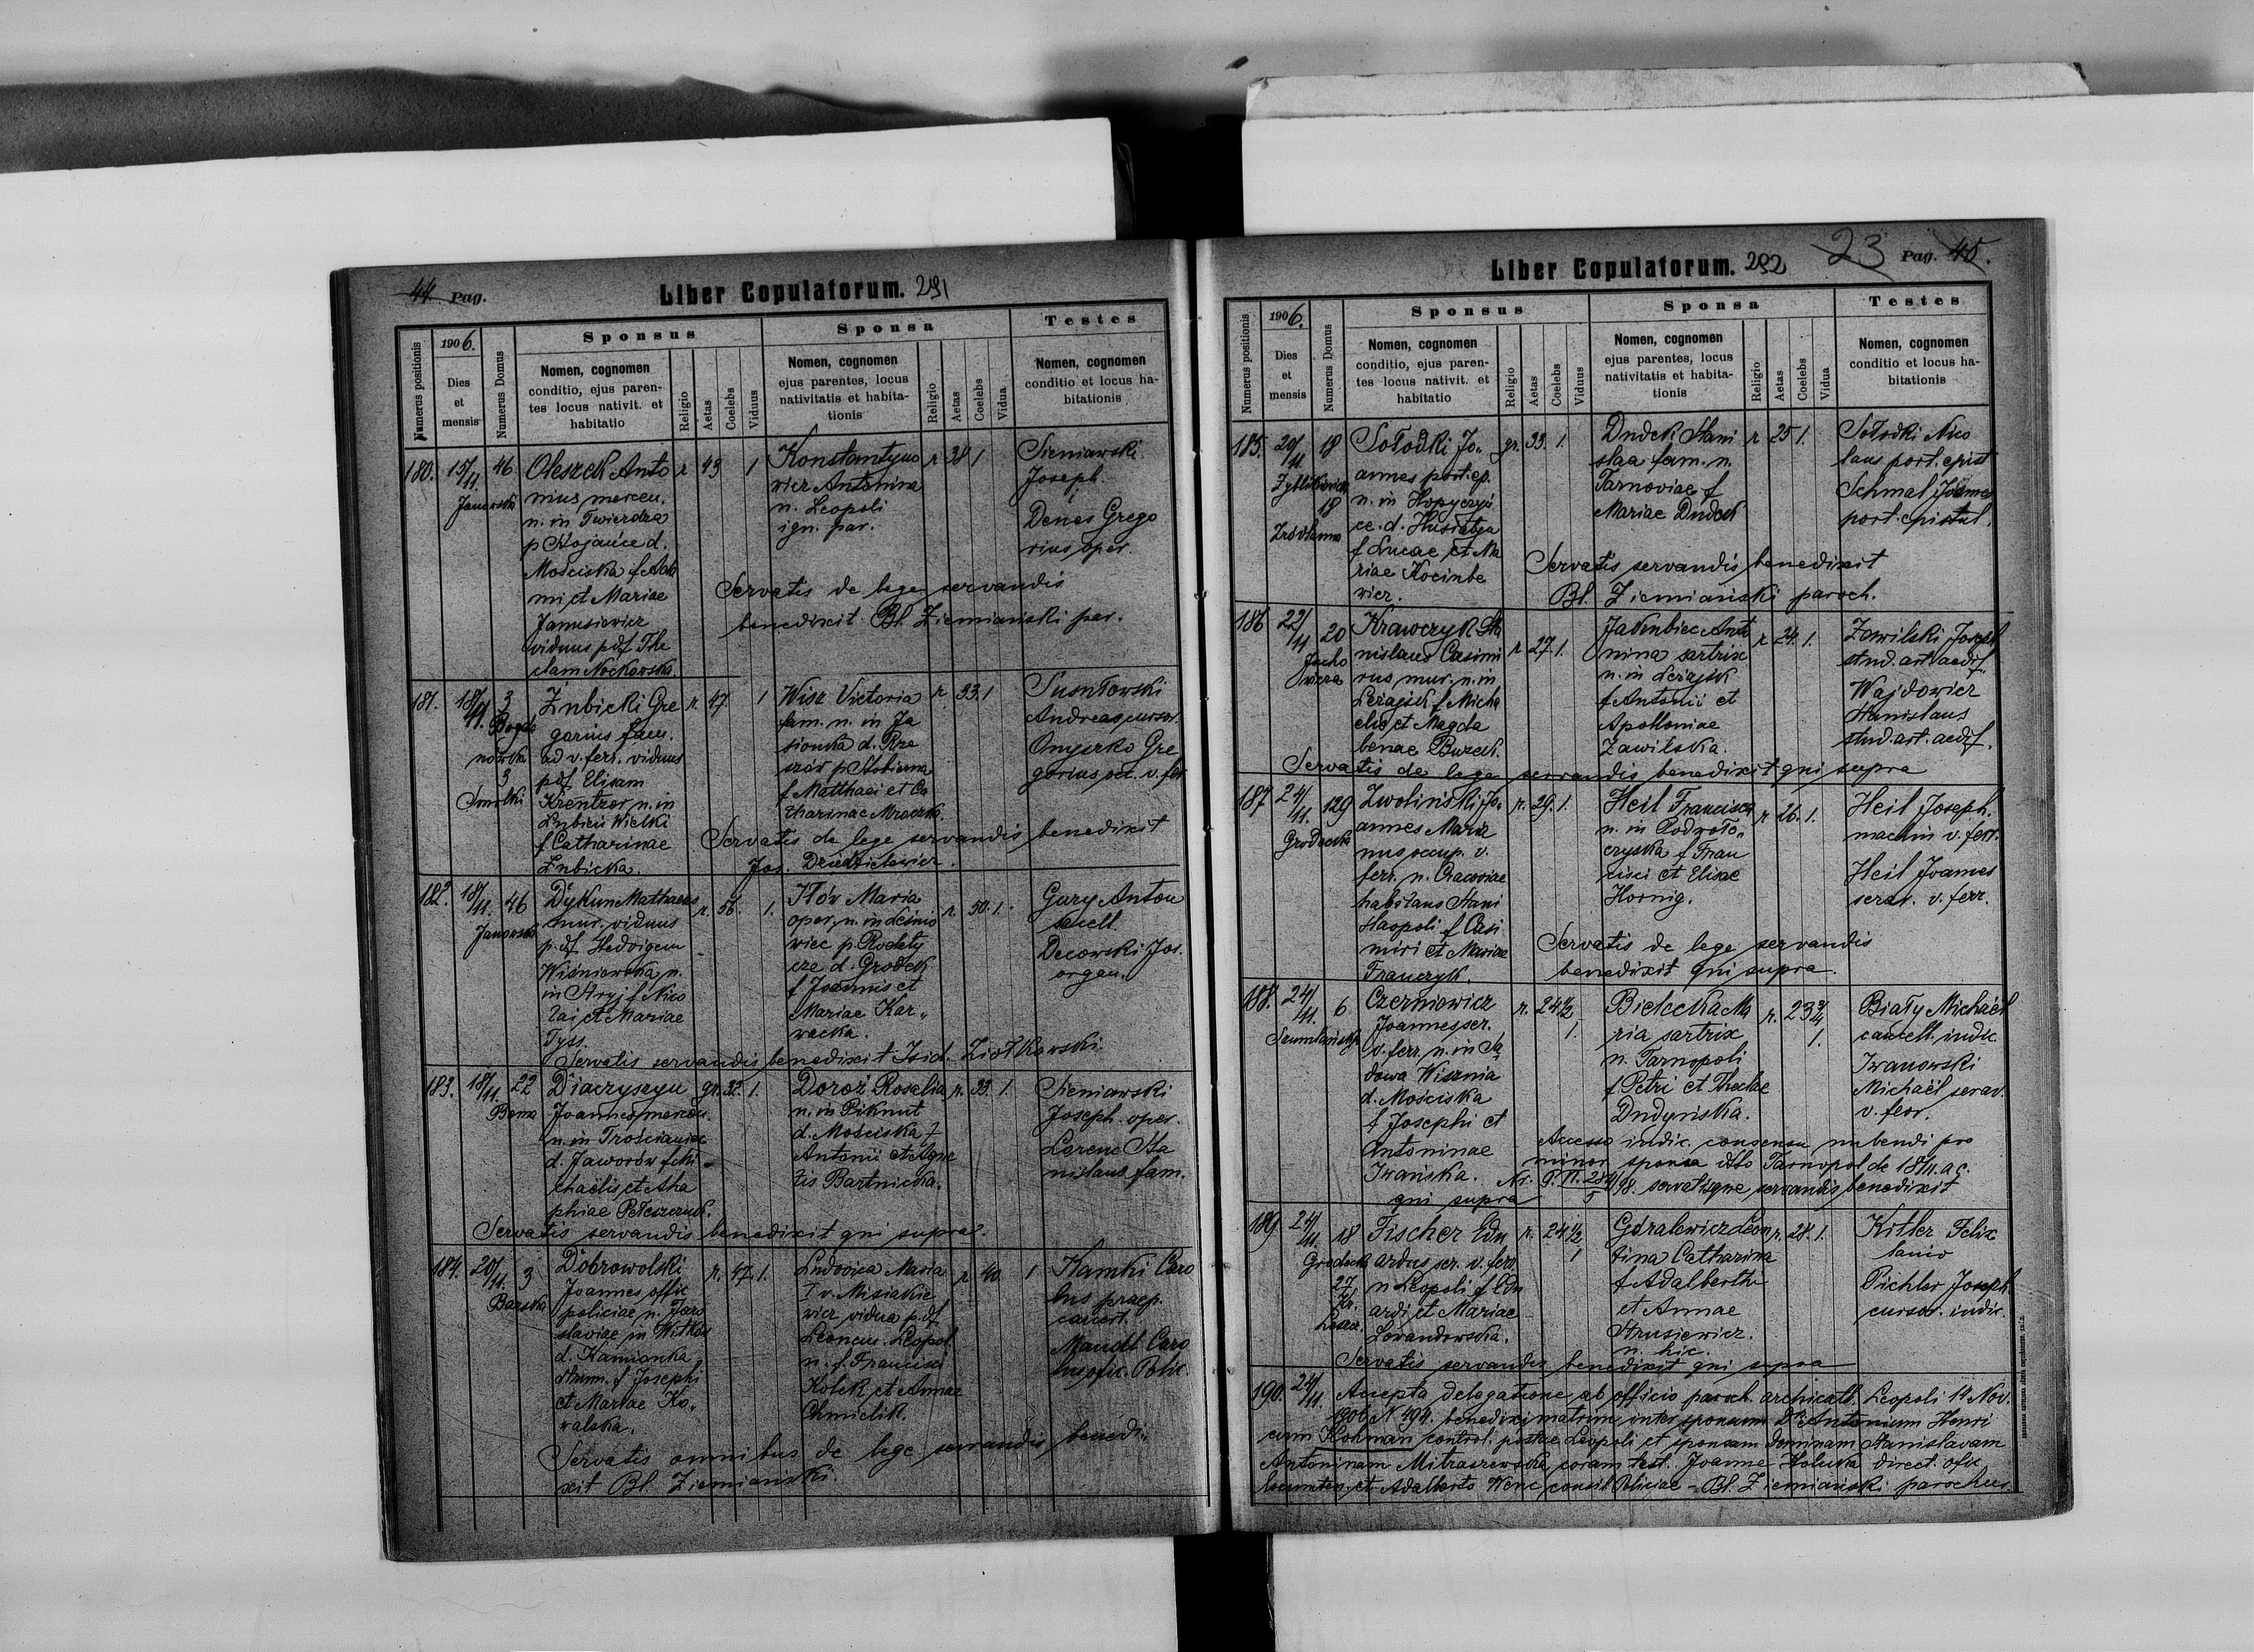 44. Pag.
Liber Copulatorum. 291
Numerus positionis
1906.
Dies
et
mensis
Numerus Domus
Sponsus
Nomen, cognomen
conditio, ejus paren-
tes locus nativit. et
habitatio
Religio
Aetas
Coelebs
Viduus
Sponsa
Nomen, cognomen
ejus parentes, locus
nativitatis et habita-
tionis
Religio
Aetas
Coelebs
Vidua
Testes
Nomen, cognomen
conditio et locus ha-
bitationis
180. 15/11 46
Janowska
Oleszek Anto
nius mercen.
n. in Twierdza
d.
Mościska f Ada
mi et Mariae
Janusiewicz
viduus p df The
clam Nockowska.
r 43 1
Konstantyno
wicz Antonina
n. Leopoli
ign. par.
r 38 1
Sieniawski
Joseph.
Denes Grego
rius oper.
Servatis de lege servandis
benedixit Bl. Ziemiański par.
181. 18/11. 3
Bogda
nówka
3
Smolki
Żubicki Gre
gorius
ad v. ferr. viduus
p df Elisam
n. in
Wielki
f Catharinae
Żubicka.
r. 47. 1
Wisz Victoria
fam. n. in Ja
sionka d. Rze
szów p Stobierna
f Matthaei et Ca
tharinae Mroczka.
r. 33. 1
Susułowski
Andreas cursor.
Onyszko Gre
gorius v. fer
Servatis de lege servandis benedixit
Jos. Dziedzielewicz.
182. 18/11. 46
Janowska
Dykun Mathaeus
mur. viduus
p. df Hedvigem
Wiśniewska n.
in Stryj f Nico
lai et Mariae
Tyss.
r. 56. 1.
Flów Maria
oper, n. in Leśnio
wice p Rodaty
cze d. Gródek
f Joannis et
Mariae Kar„
wacka.
r. 50. 1.
Gury Anton
Decowski Jos.
organ.
Servatis servandis benedixit Isid. Ziołkowski.
183. 18/11. 22
Bema
Diaczyszyn
Joannes mercen.
n. in Trościaniec
d. Jaworów f Mi
chaëlis et Aha
phiae
gr. 32. 1.
Doroż Rosalia
n. in Pikmut
d. Mościska f
Antonii et Agne
tis Bartnicka.
r. 33. 1.
Sieniawski
Joseph. oper.
Lorenc Sta
nislaus fam.
Servatis servandis benedixit qui supra.
184. 20/11. 3
Barska
Dobrowolski
Joannes offic
policiae n. Jaro
slaviae in Witków
d. Kamionka
strum. f Josephi
et Mariae Ko„
walska.
r. 47. 1.
Ludovica Maria
I v. Misiakie
wicz vidua p. df
Leonem. Leopol.
n. f. Francisci
Kołek et Annae
Chmielik.
r 40. 1
Kamki Caro
lus praep.
carcert.
Mandl Caro
lus ofic. Polic.
Servatis omnibus de lege servandis benedi„
xit Bl. Ziemiański.
Liber Copulatorum. 292
23 Pag. 45.
Numerus positionis
1906.
Dies
et
mensis
Numerus Domus
Sponsus
Nomen, cognomen
conditio, ejus paren-
tes locus nativit. et
habitatio
Religio
Aetas
Coelebs
Viduus
Sponsa
Nomen, cognomen
ejus parentes, locus
nativitatis et habita-
tionis
Religio
Aetas
Coelebs
Vidua
Testes
Nomen, cognomen
conditio et locus ha-
bitationis
185. 20/11. 18
Zyblikiewicza
18
Zródlanna
Sołodki Jo„
annes port. ep.
n. in
ce. d. Husiatyn
f Lucae et Ma
riae Kocinbe
wicz.
gr. 33. 1.
Dudek Stani
slaa fam. n.
Tarnoviae f
Mariae Dudek
r 25 1.
Sołodki Nico
laus port. epist
Schmal Joannes
port. epistul.
Servatis servandis benedixit
Bl. Ziemiański paroch.
186 22/11 20
Jacho
wicza
Krawczyk Sta
nislaus Casimi
rus mur. n. in
Leżajsk f Micha
elis et Magda
lenae Buzek.
r 27. 1.
Jakubiec Anto
nina sartrix
n. in Leżajsk
f Antonii et
Apolloniae
Zawilska.
r 24. 1.
Zawilski Joseph
stud. art. aedif.
Wajdowicz
Stanislaus
stud. art. aedif.
Servatis de lege servandis benedixit qui supra
187 24/11. 129
Grodecka
Zwoliński Jo„
annes Maria
nus occup. v.
ferr. n. Cracoviae
habitans Stani
slaopoli f Casi
miri et Mariae
Franczyk.
r. 29. 1.
Heil Francisca
n. in Podwoło„
czyska f Fran
cisci et Elisae
Hornig.
r 26. 1.
Heil Joseph.
machin v. ferr.
Heil Joannes
serav. v. ferr.
Servatis de lege servandis
benedixit qui supra.
188. 24/11. 6
Szumlańskich
Czerniawicz
Joannes ser.
v. ferr. n. in Sa
dowa Wisznia
d. Mościska
f Josephi et
Antoninae
Iwańska.
r. 24 1/2 1.
Bielecka Ma
ria sartrix
n. Tarnopoli
f Petri et Theclae
Dudyńska.
r. 23 3/4 1.
Biały Michaël
cancell. iudic
Iwanowski
Michaël serav.
v. ferr.
Accesso iudic. consensu nubendi pro
minor sponsa dtto Tarnopol de 18/11. a c.
servatisque servandis benedixit
qui supra
189. 24/11. 18
Grodecka
27
Fischer Edu
ardus ser. v. ferr.
n Leopoli f Edu
ardi et Mariae
Lewandowska.
r. 24 1/2 1
Góralewicz Leon
tina Catharina
f Adalberthi
et Annae
Strusiewicz.
n. hic.
r. 28. 1.
Kitler Felix
lanio
Pichler Joseph
cursor. iudic.
Servatis servandis benedixit qui supra
190. 24/11. Accepta delegatione ab officio paroch. archicath. Leopoli 14 Nov.
1906 N 494. benedixi matrim. inter sponsum Dr Antonium Henri
cum Hohman control. postae Leopoli et sponsam dominam Stanislavam
Antoninam Mitraszewska coram test. Joanne Holuka direct. ofic
locumten. et Adalberto Wenc consil Policiae – Bl. Ziemiański parochus